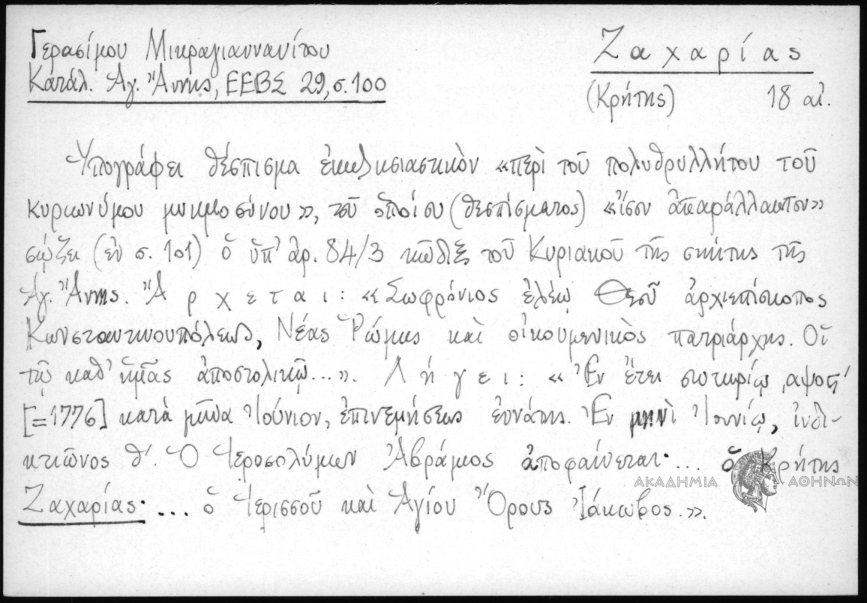 Γερασίμου Μικραγιαννανίτου
Κατάλ. Ἁγ. Ἄννης, ΕΕΒΣ 29, σ. 100
Ζαχαρίας
(Κρήτης) 18 αἰ.
Ὑπογράφει θέσπισμα ἐκκλησιαστικὸν «περὶ τοῦ πολυθρυλλήτου τοῦ
κυριωνύμου μνημοσύνου», τοῦ ὁποίου (θεσπίσματος) «ἴσον ἀπαράλλακτον»
σῴζει (ἐν σ. 101) ὁ ὑπ' ἀρ. 84/3 κῶδιξ τοῦ Κυριακοῦ τῆς σκήτης τῆς
Ἁγ. Ἄννης. Ἄρχεται: «Σωφρόνιος ἐλέῳ Θεοῦ ἀρχιεπίσκοπος
Κωνσταντινουπόλεως, Νέας Ῥώμης καὶ οἰκουμενικὸς πατριάρχης. Οἱ
τῷ καθ' ἡμᾶς ἀποστολικῷ...». Λήγει: «Ἐν ἔτει σωτηρίῳ ,αψοϛ'
[=1776] κατὰ μῆνα Ἰούνιον, ἐπινεμήσεως ἐννάτης. Ἐν μηνὶ Ἰουνίῳ, ἰνδι-
κτιῶνος θ'. Ὁ Ἱεροσολύμων Ἀβράμιος ἀποφαίνεται· ... ὁ Κρήτης
ΑΚΑΔΗΜΙΑ ΑΘΗΝΩΝ
Ζαχαρίας· ... ὁ Ἱερισσοῦ καὶ Ἁγίου Ὄρους Ἰάκωβος.».